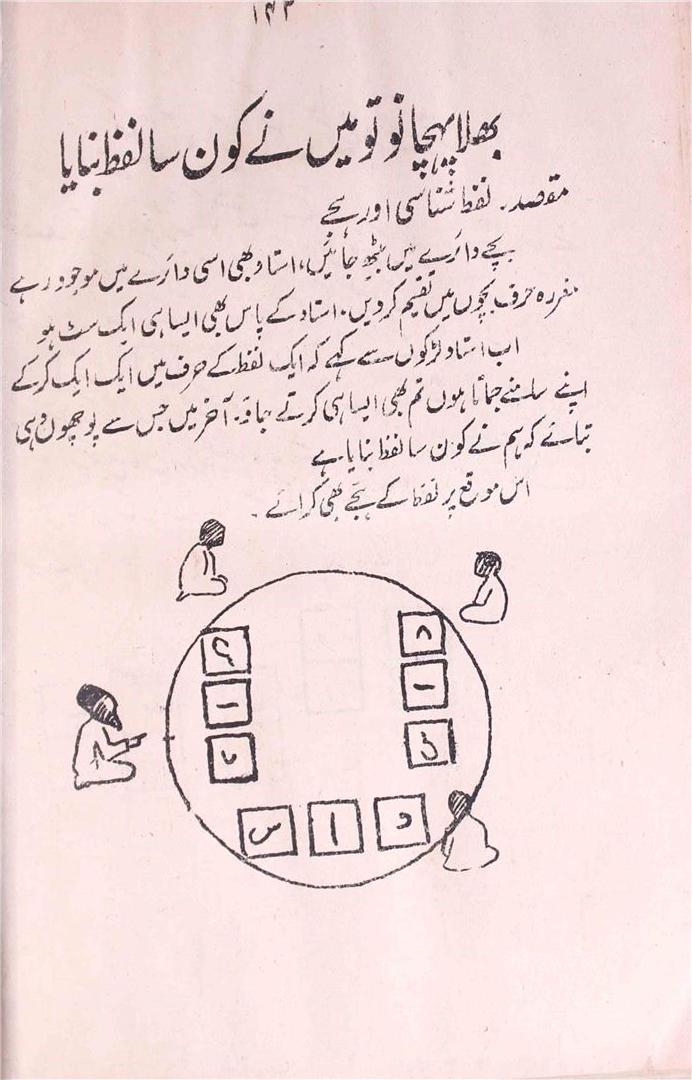 ۱۴۳
بھلا پہچانو تو میں نے کون سا لفظ بنایا
مقصد۔ لفظ شناسی اور ہجے
بچے دائرے میں بیٹھ جائیں، استاد بھی اسی دائرے میں موجود رہے
مقررہ حرف بچوں میں تقسیم کر دیں۔ استاد کے پاس بھی ایسا ہی ایک سٹ ہو
اب استاد لڑکوں سے کہے کہ ایک لفظ کے حرف میں ایک ایک کر کے
اپنے سامنے جماتا ہوں تم بھی ایسا ہی کرتے جاؤ۔ آخر میں جس سے پوچھوں وہی
بتائے کہ ہم نے کون سا لفظ بنایا ہے
اس موقع پر لفظ کے ہجے بھی کرائے۔
د
ا
ا
د ا س